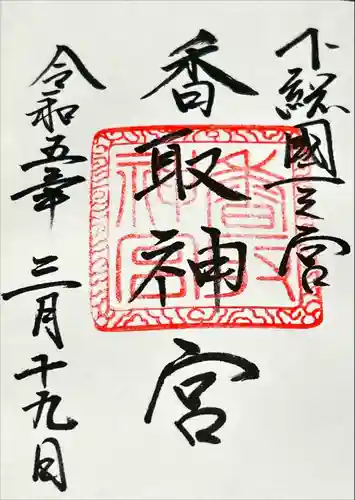 下総國一之宮
香取神宮
令和五年 三月十九日
香取神宮